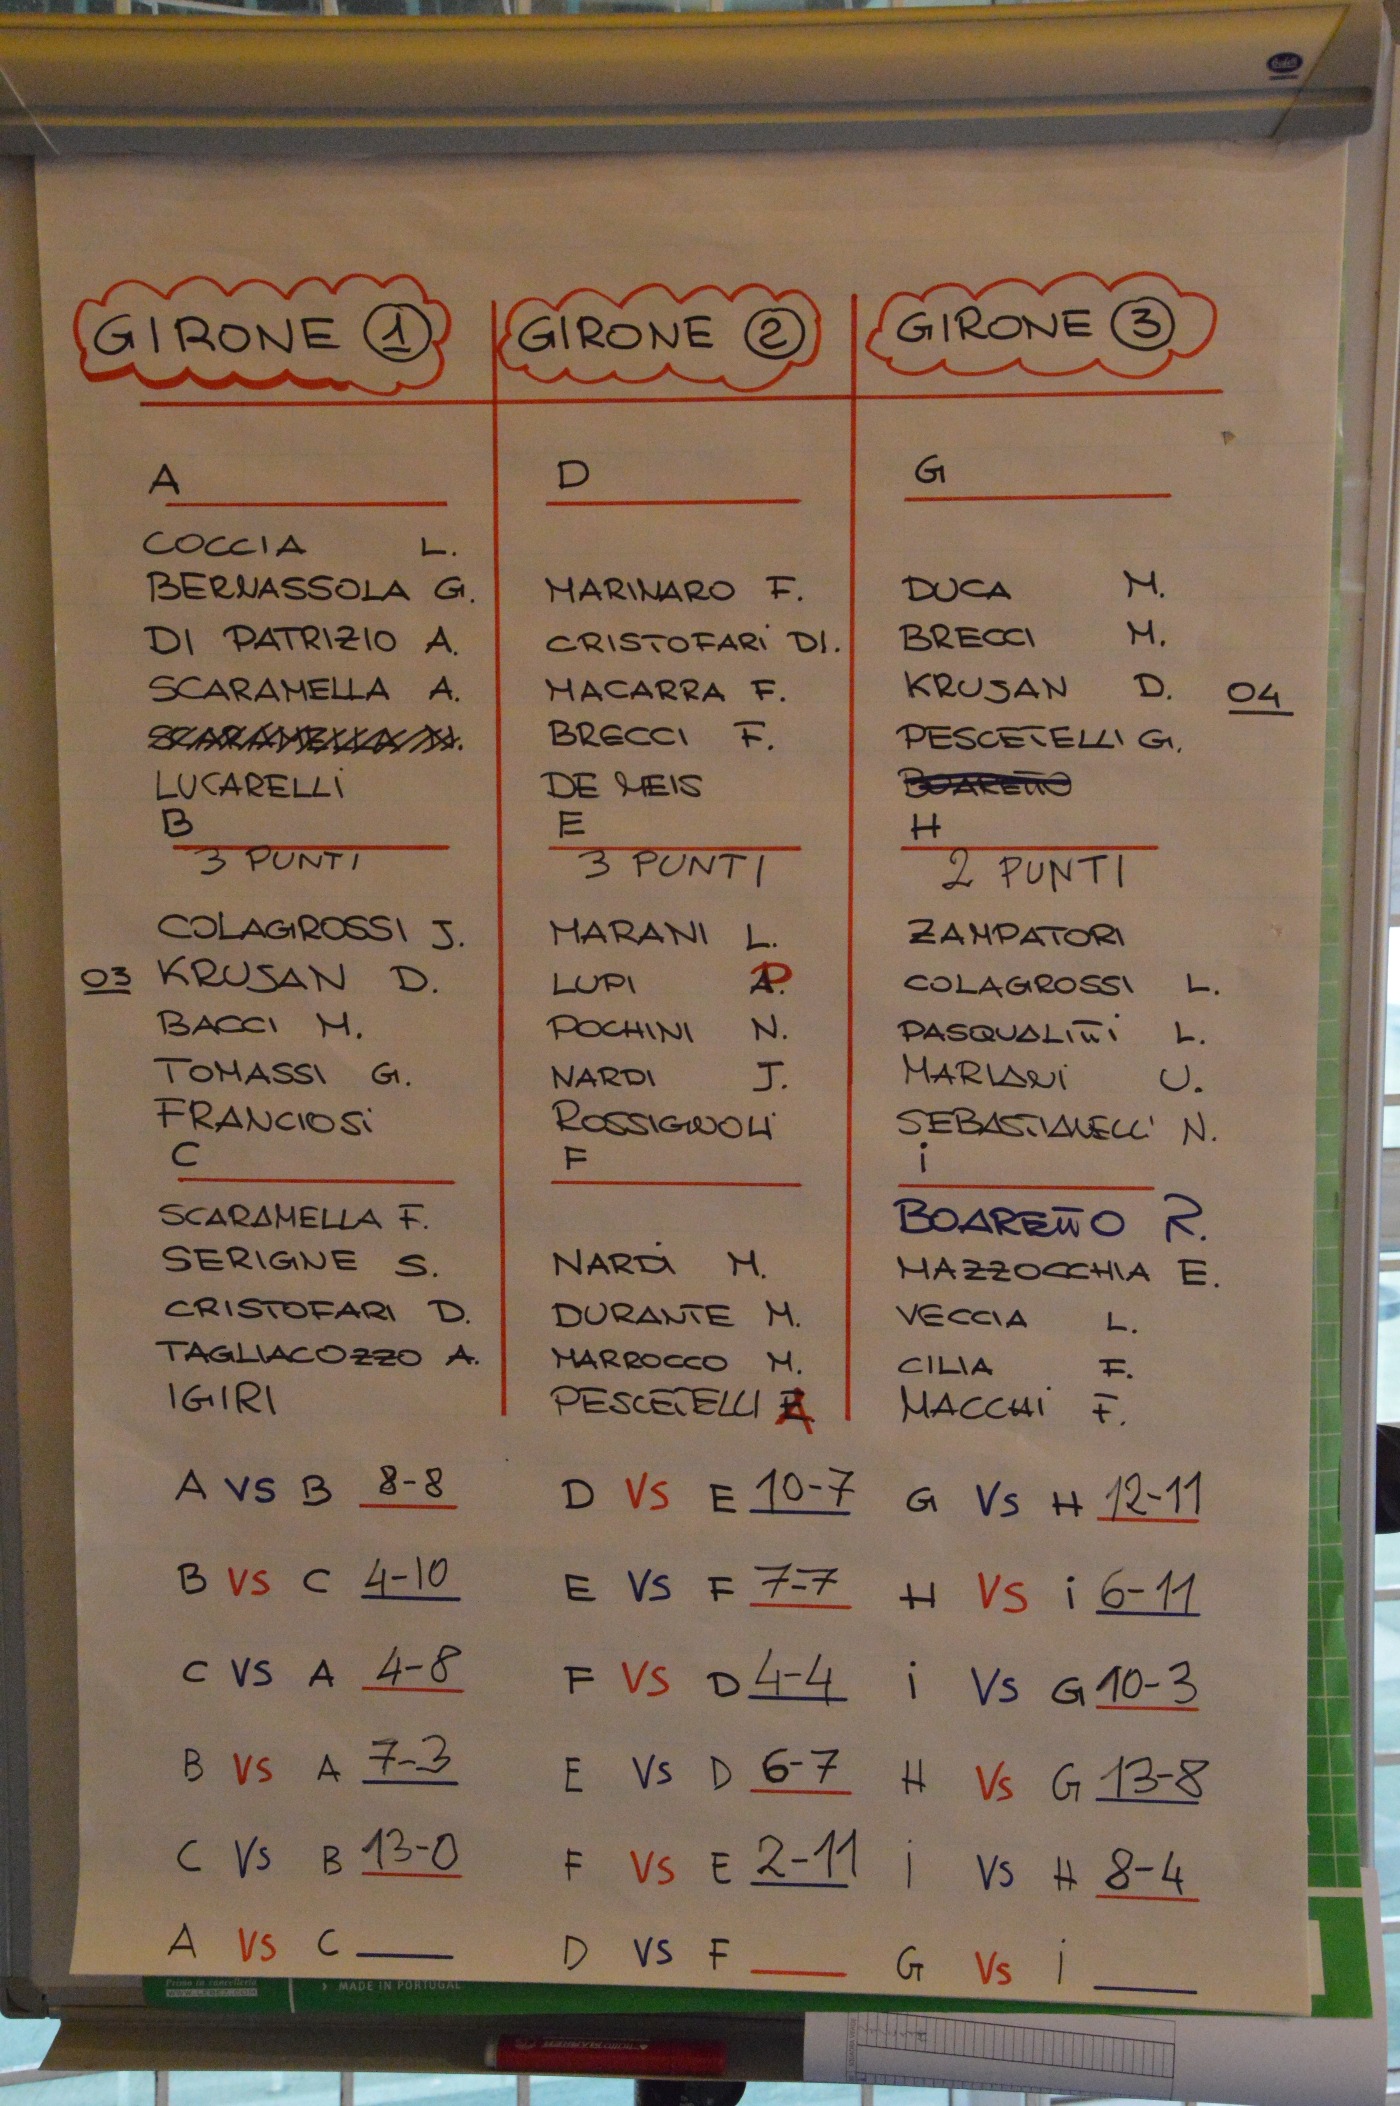 GIRONE 1
GIRONE 2
GIRONE 3
A
COCCIA L.
BERNASSOLA G.
DI PATRIZIO A.
SCARAMELLA A.
SCARAMELLA N.
LUCARELLI
B
3 PUNTI
COLAGROSSI J.
03 KRUSAN D.
BACCI M.
TOMASSI G.
FRANCIOSI
C
SCARAMELLA F.
SERIGNE S.
CRISTOFARI D.
TAGLIACOZZO A.
IGIRI
D
MARINARO F.
CRISTOFARI DI.
MACARRA F.
BRECCI F.
DE MEIS
E
3 PUNTI
MARANI L.
LUPI P.
POCHINI N.
NARDI J.
ROSSIGNOLI
F
NARDI M.
DURANTE M.
MARROCCO M.
PESCETELLI A
G
DUCA M.
BRECCI M.
KRUSAN D. 04
PESCETELLI G.
BOARETTO
H
2 PUNTI
ZAMPATORI
COLAGROSSI L.
PASQUALITTI L.
MARIANI U.
SEBASTIANELLI N.
i
BOARETTO R.
MAZZOCCHIA E.
VECCIA L.
CILIA F.
MACCHI F.
A VS B 8-8
D VS E 10-7
G VS H 12-11
B VS C 4-10
E VS F 7-7
H VS i 6-11
C VS A 4-8
F VS D 4-4
i VS G 10-3
B VS A 7-3
E VS D 6-7
H VS G 13-8
C VS B 13-0
F VS E 2-11
i VS H 8-4
A VS C
D VS F
G VS i
Primo in cancelleria
WWW.LEBEZ.COM
MADE IN PORTUGAL